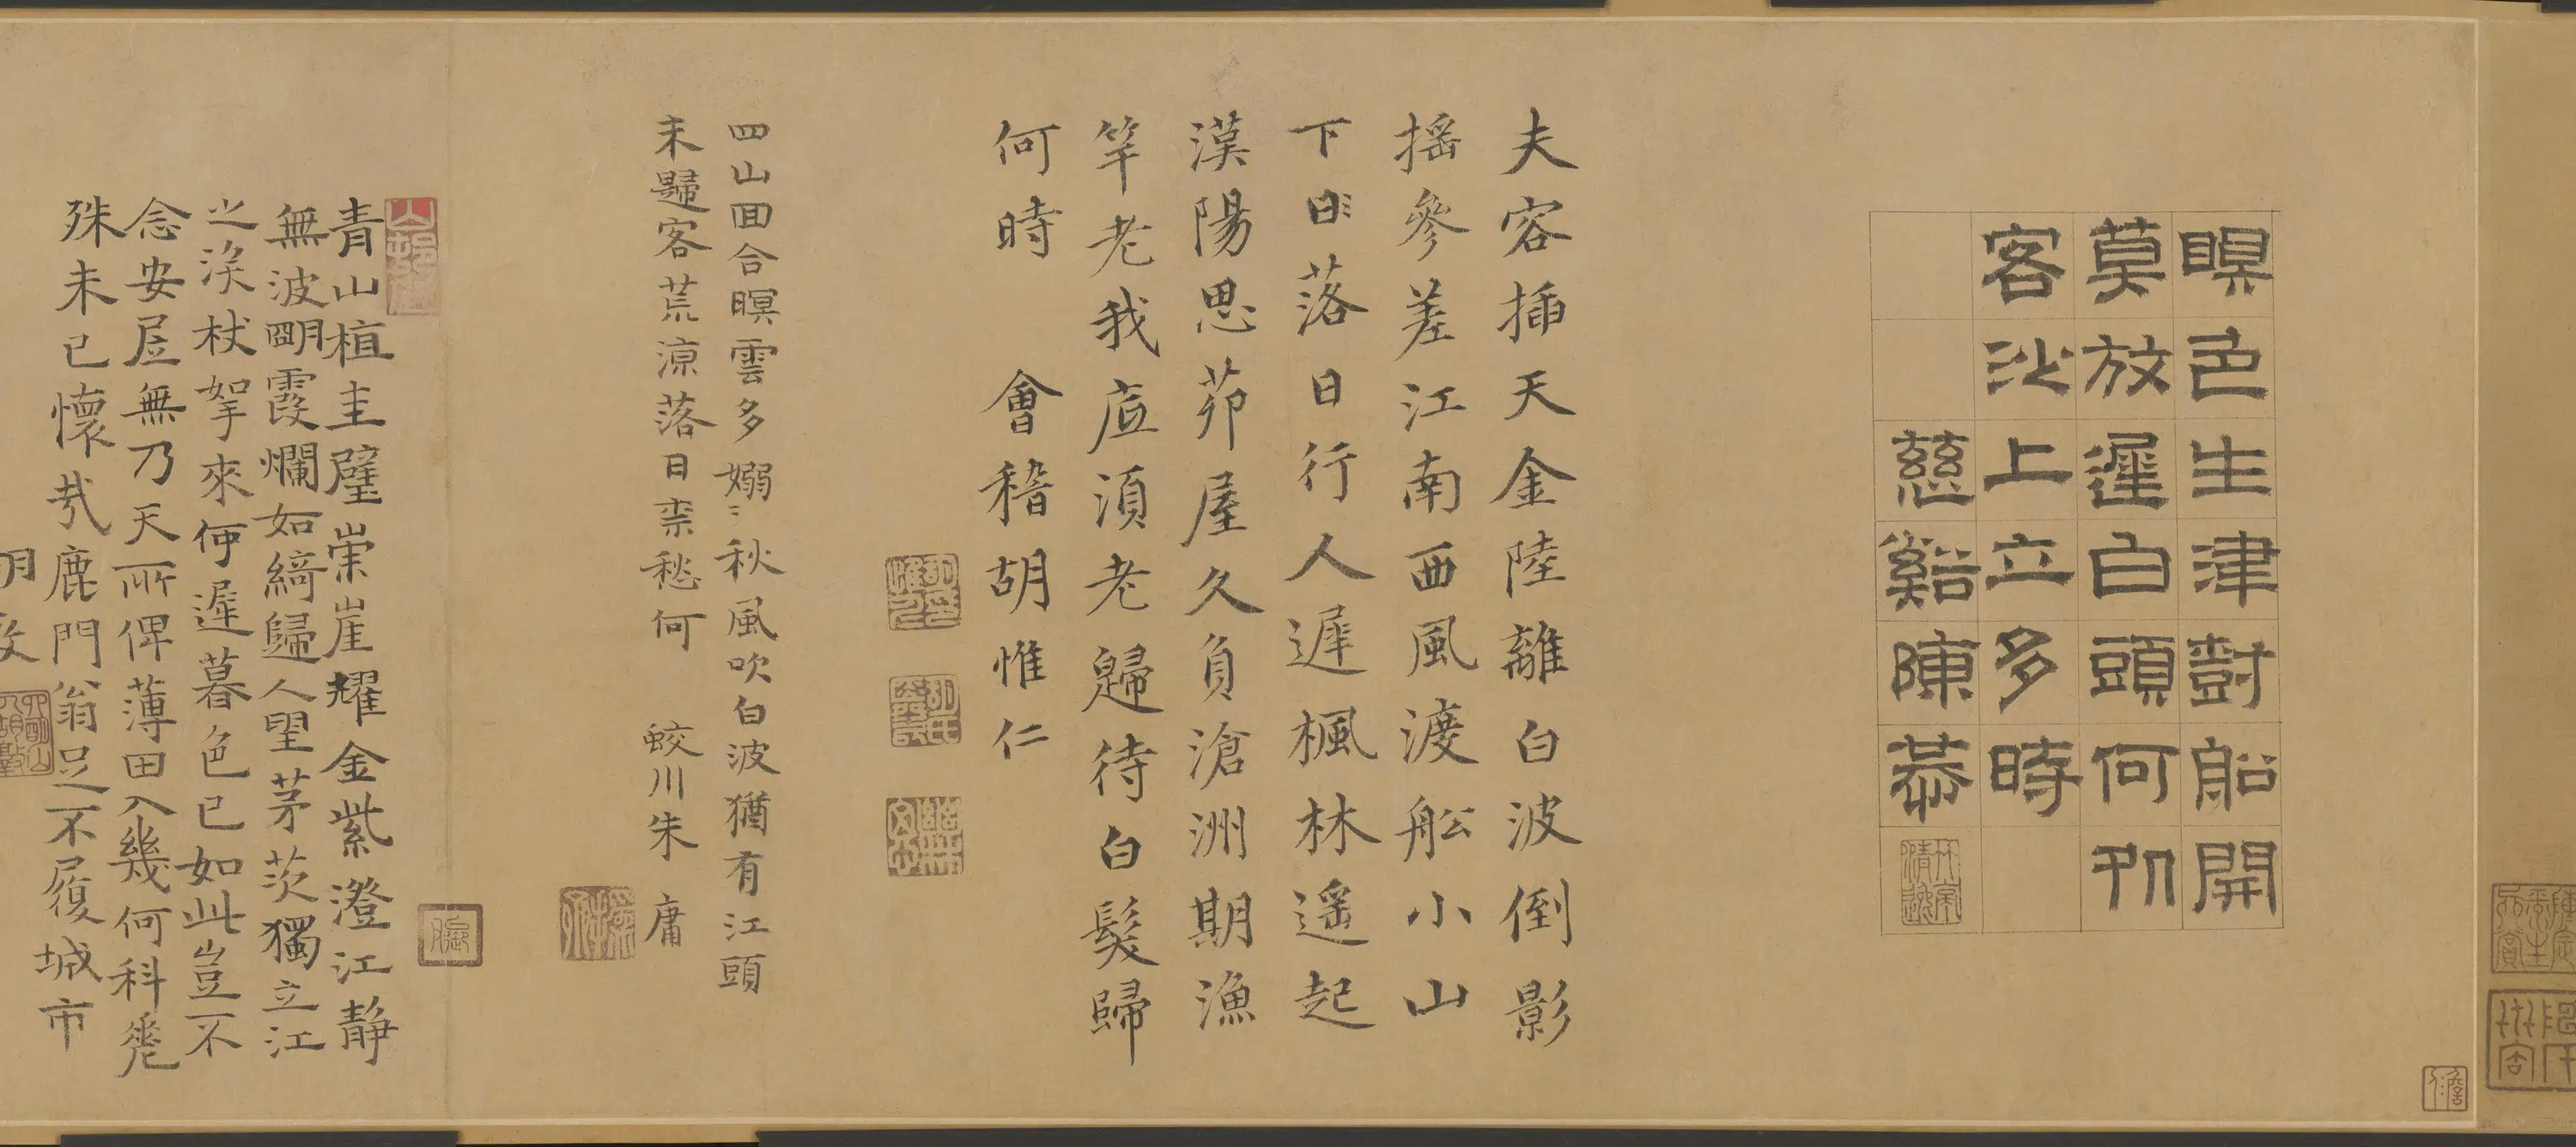 瞑色生津對船開
莫放遲白頭何列
客沙上立多時
慈谿陳恭
夫容插天金陸離白波倒影
搖參差江南西風渡舩小山
下日落日行人遲楓林遥起
漠陽思茆屋久負滄洲期漁
竿老我應須老歸待白髮歸
何時 會稽胡惟仁
四山回合瞑雲多嫋〻秋風吹白波猶有江頭
未歸客荒涼落日柰愁何 蛟川朱庸
青山植圭璧崇崖耀金紫澄江靜
無波朙霞爛如綺歸人望茅茨獨立江
之涘杖挐來何遲暮色已如此豈不
念安居無乃天所俾薄田入幾何科
殊未已懷哉鹿門翁足不履城市